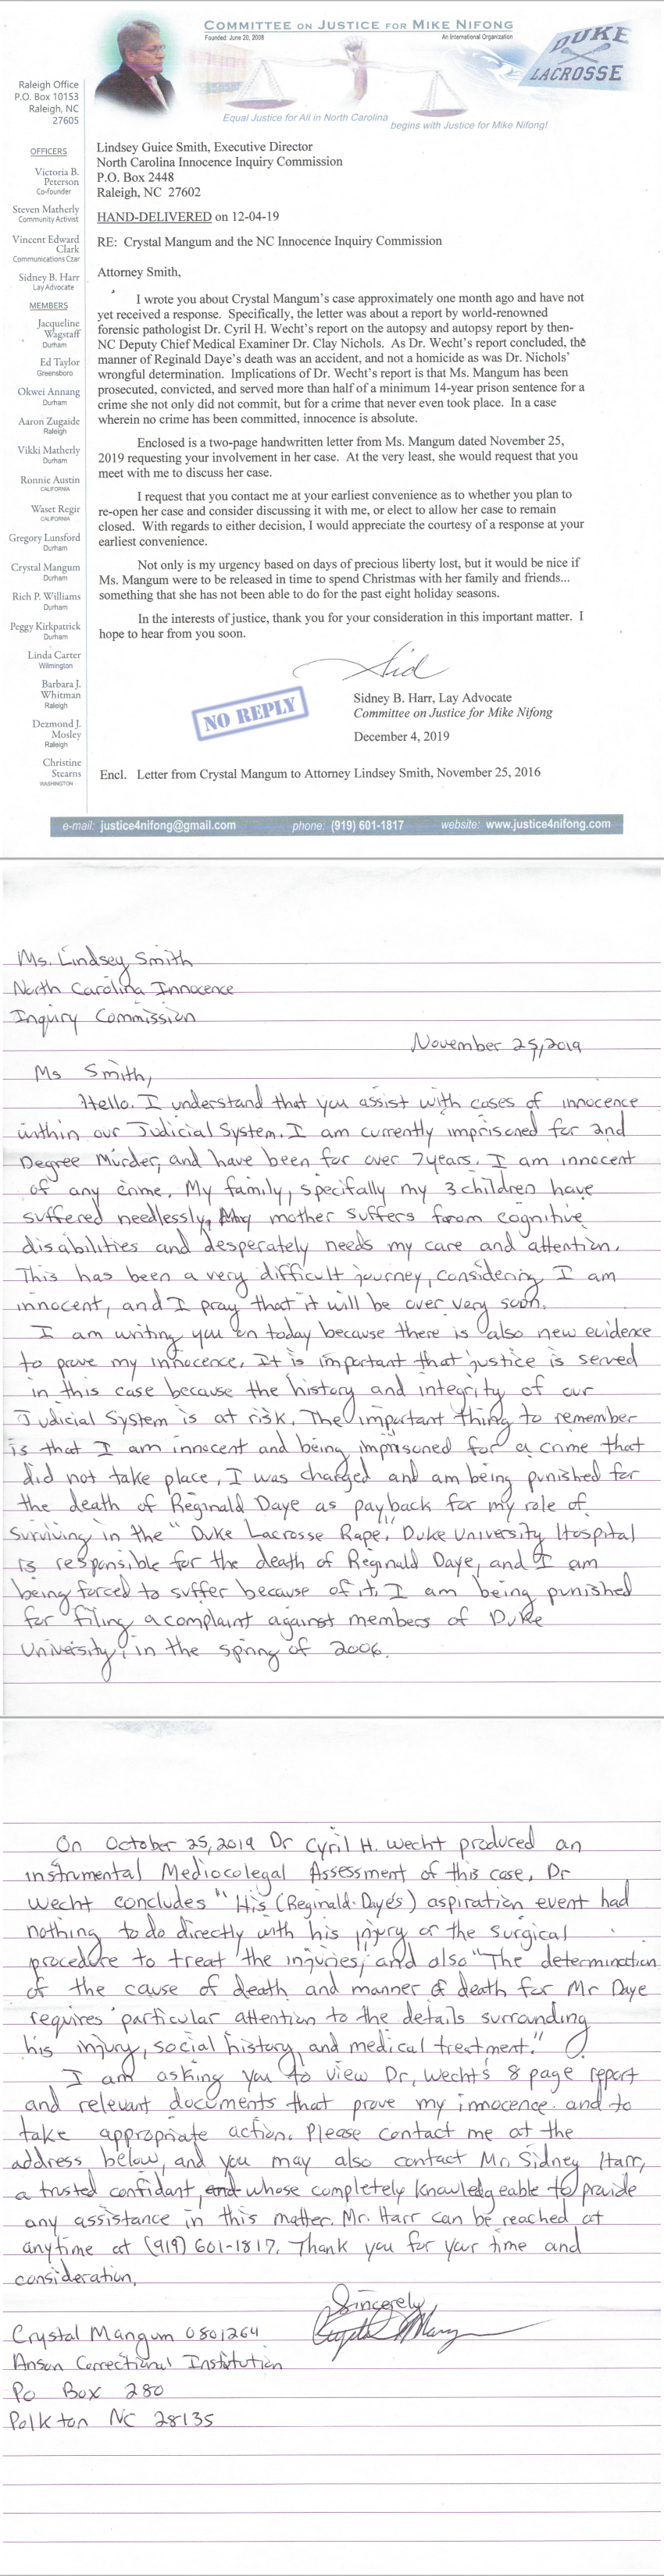 COMMITTEE ON JUSTICE FOR MIKE NIFONG
Founded: June 20, 2008
An International Organization
DUKE
LACROSSE
Equal Justice for All in North Carolina
begins with Justice for Mike Nifong!
Raleigh Office
P.O. Box 10153
Raleigh, NC
27605
OFFICERS
Victoria B.
Peterson
Co-founder
Steven Matherly
Community Activist
Vincent Edward
Clark
Communications Czar
Sidney B. Harr
Lay Advocate
MEMBERS
Jacqueline
Wagstaff
Durham
Ed Taylor
Greensboro
Okwei Annang
Durham
Aaron Zugaide
Raleigh
Vikki Matherly
Durham
Ronnie Austin
CALIFORNIA
Waset Regir
CALIFORNIA
Gregory Lunsford
Durham
Crystal Mangum
Durham
Rich P. Williams
Durham
Peggy Kirkpatrick
Durham
Linda Carter
Wilmington
Barbara J.
Whitman
Raleigh
Dezmond J.
Mosley
Raleigh
Christine
Stearns
WASHINGTON
Lindsey Guice Smith, Executive Director
North Carolina Innocence Inquiry Commission
P.O. Box 2448
Raleigh, NC 27602
HAND-DELIVERED on 12-04-19
RE: Crystal Mangum and the NC Innocence Inquiry Commission
Attorney Smith,
I wrote you about Crystal Mangum's case approximately one month ago and have not
yet received a response. Specifically, the letter was about a report by world-renowned
forensic pathologist Dr. Cyril H. Wecht's report on the autopsy and autopsy report by then-
NC Deputy Chief Medical Examiner Dr. Clay Nichols. As Dr. Wecht's report concluded, the
manner of Reginald Daye's death was an accident, and not a homicide as was Dr. Nichols'
wrongful determination. Implications of Dr. Wecht's report is that Ms. Mangum has been
prosecuted, convicted, and served more than half of a minimum 14-year prison sentence for a
crime she not only did not commit, but for a crime that never even took place. In a case
wherein no crime has been committed, innocence is absolute.
Enclosed is a two-page handwritten letter from Ms. Mangum dated November 25,
2019 requesting your involvement in her case. At the very least, she would request that you
meet with me to discuss her case.
I request that you contact me at your earliest convenience as to whether you plan to
re-open her case and consider discussing it with me, or elect to allow her case to remain
closed. With regards to either decision, I would appreciate the courtesy of a response at your
earliest convenience.
Not only is my urgency based on days of precious liberty lost, but it would be nice if
Ms. Mangum were to be released in time to spend Christmas with her family and friends...
something that she has not been able to do for the past eight holiday seasons.
In the interests of justice, thank you for your consideration in this important matter. I
hope to hear from you soon.
Sid
NO REPLY
Sidney B. Harr, Lay Advocate
Committee on Justice for Mike Nifong
December 4, 2019
Encl. Letter from Crystal Mangum to Attorney Lindsey Smith, November 25, 2016
e-mail: justice4nifong@gmail.com phone: (919) 601-1817 website: www.justice4nifong.com
Ms. Lindsey Smith
North Carolina Innocence
Inquiry Commission
November 25, 2019
Ms Smith,
Hello. I understand that you assist with cases of innocence
within our Judicial System. I am currently imprisoned for 2nd
Degree Murder, and have been for over 7 years. I am innocent
of any crime. My family, specifally my 3 children have
suffered needlessly. My mother suffers from cognitive
disabilities and desperately needs my care and attention.
This has been a very difficult journey, considering I am
innocent, and I pray that it will be over very soon.
I am writing you on today because there is also new evidence
to prove my innocence. It is important that justice is served
in this case because the history and integrity of our
Judicial System is at risk. The important thing to remember
is that I am innocent and being imprisoned for a crime that
did not take place. I was charged and am being punished for
the death of Reginald Daye as payback for my role of
surviving in the "Duke Lacrosse Rape." Duke University Hospital
is responsible for the death of Reginald Daye, and I am
being forced to suffer because of it. I am being punished
for filing a complaint against members of Duke
University, in the spring of 2006.
On October 25, 2019 Dr Cyril H. Wecht produced an
instrumental Mediocolegal Assessment of this case. Dr
Wecht concludes "His (Reginald Daye's) aspiration event had
nothing to do directly with his injury or the surgical
procedure to treat the injuries," and also "The determination
of the cause of death and manner of death for Mr Daye
requires particular attention to the details surranding
his injury, social history, and medical treatment."
I am asking you to view Dr. Wecht's 8 page report
and relevant documents that prove my innocence. and to
take appropriate action. Please contact me at the
address below, and you may also contact Mr. Sidney Harr,
a trusted confidant, and whose completely knowledgeable to provide
any assistance in this matter. Mr. Harr can be reached at
anytime at (919) 601-1817. Thank you for your time and
consideration.
Sincerely
Crystal Mangum
Crystal Mangum 0801264
Anson Correctional Institution
Po Box 280
Polkton NC 28135